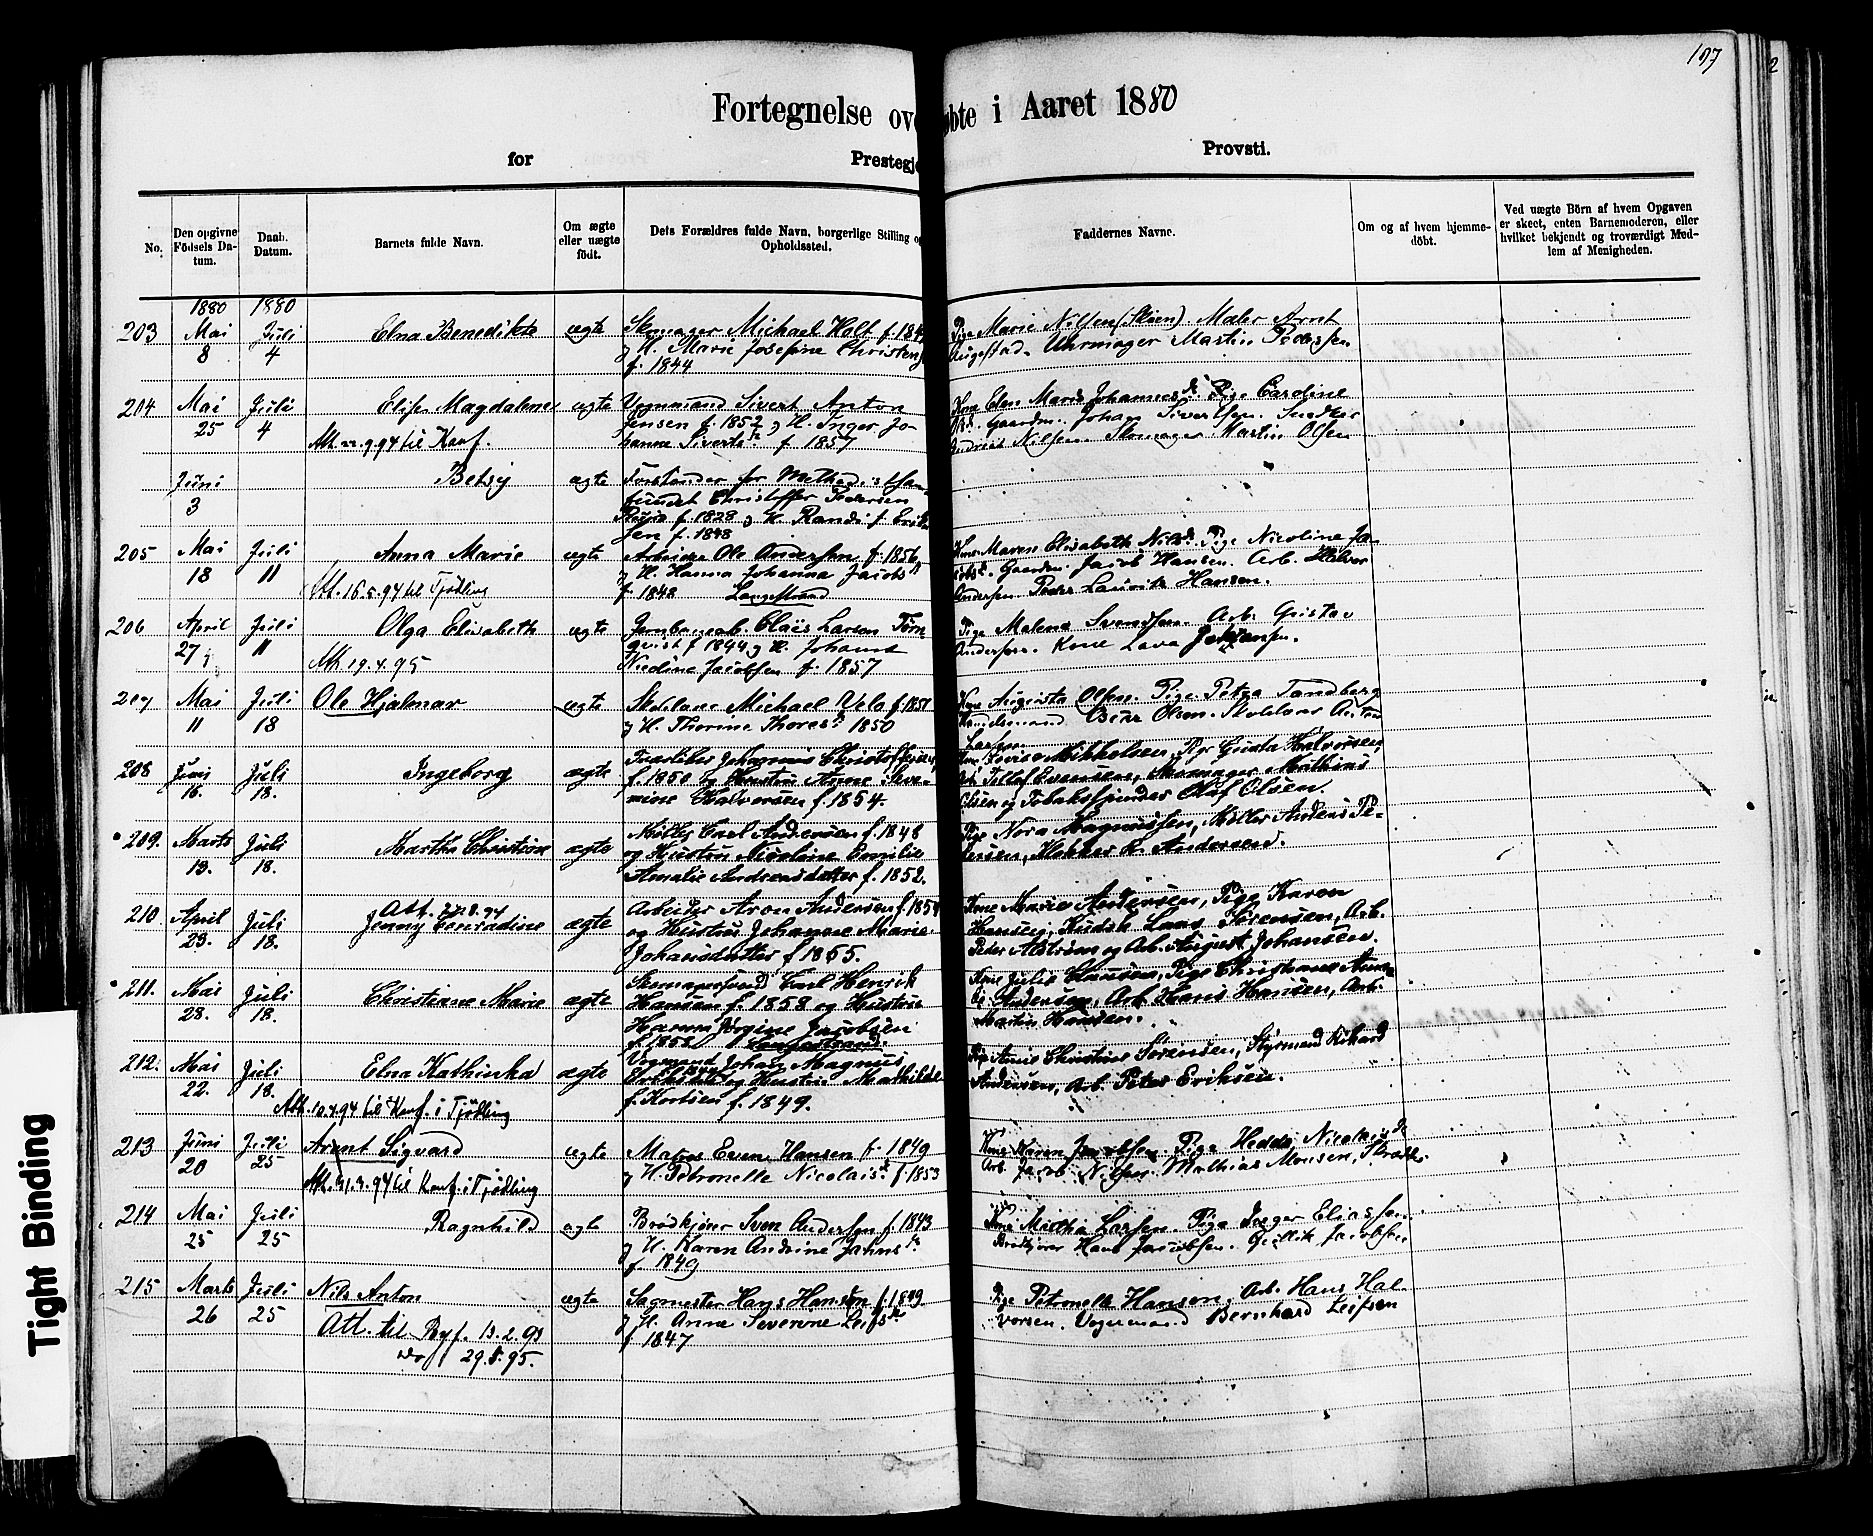 197
2
Fortegnelse ov øbte i Aaret 1880
for Prestegje Provsti.
No. Den opgivne Födsels Datum. Daab. Datum. Barnets fulde Navn. Om ægte eller uægte födt. Dets Forældres fulde Navn, borgerlige Stilling og Opholdssted. Faddernes Navne. Om og af hvem hjemmedöbt. Ved uægte Börn af hvem Opgaven er skeet, enten Barnemoderen, eller hvilket bekjendt og troværdigt Medlem af Menigheden.
1880 1880
203 Mai 8 Juli 4 Elna Benedikte ægte
Skomager Michael Holt f.
og H. Marie Josefine Christens
f. 1844
Pige Marie Nilsen (Skien). Maler Arnt
Augestad. Uhrmager Martin Pedersen
204 Mai 25 Juli 4 Elise Magdalene ægte
Att. 22.9.94 til Konf.
Vognmand Sivert Anton
Jensen f. 1852 og H. Inger Jo-
hanne Sivertsd. f. 1857
Kone Elen Marie Johannesd. Pige Cardine
Gaardm. Johan Sivertsen. Snedker
Andreas Nilsen. Skomager Martin Olsen
Juni 3 Betsy ægte
Forstander for Methodistsam-
fundet Christoffer Pedersen
f. 1828 og H. Randi f. Erik-
sen f. 1848
205 Mai 18 Juli 11 Anna Marie ægte
Att. 16.5.94 til Tjølling
Arbeider Ole Andersen f. 1856
og H. Hanna Johanna Jacobsd.
f. 1848 Langestrand
Kone Maren Elisabeth Nilsd. Pige Nicoline Ja-
cobsd. Gaardm. Jacob Hansen. Arb. Halvor
Andersen Peder Lauritz Hansen.
206 April 27 Juli 11 Olga Elisabeth ægte
Att. 19.4.95
Jernbanearb. Claës Larsen Törn-
qvist f. 1844 og H. Johanne
Nicdine Jacobsen f. 1857
Pige Malena Svendsen. Arb. Gustav
Andersen. Kone Lava Johansen.
207 Mai 11 Juli 18 Ole Hjalmar ægte
Michael f. 1851
og H. Thorine Thoresd. 1850
Kone Augusta Olsen. Pige Petra Tandberg
Olsen.
Larsen
208 Juni 16. Juli 18. Ingeborg ægte
Johannes Christoffersen
f. 1850 og Hustru Anne Seve-
rine Halvorsen f. 1854.
Kone Lovise Mikkelsen, Pige Gusta Halvorsen,
Arb. Tellef Evensen, Skomager Mathias
Olsen og Tobaksspinder Oluf Olsen.
209. Marts 13. Juli 18. Martha Christine ægte
Möller Carl Andersen f. 1848
og Hustru Nicoline Emilie
Amalie Andreasdatter f. 1852.
Pige Nora Magnussen, Möller Anders Pe-
dersen, Andersen.
210 April 23. Juli 18. Jenny Conradine ægte
Att.
Arbeider Aron Andersen f. 1854
og Hustru Johanne Marie
Johansdatter f 1855.
Kone Marie Andersen, Pige Karen
Hansen, Kudsk Lars Sörensen, Arb.
Peder Alström og Arb. August Johansen.
211. Mai 28. Juli 18. Christiane Marie ægte
Skomagersvend Carl Henrik
Hansen f. 1858 og Hustru
Jörgine Jacobsen
f. 1852 Langestrand.
Kone Julie Clausen, Pige Christiane Ama-
Andersen, Arb. Hans Hansen, Arb.
Martin Hansen.
212. Mai 22. Juli 18. Elna Kathinka ægte
Att. 10.4.94 til Konf. i Tjölling
Vognmand Johan Magnus
Eriksen og Hustru Mathilde
f. f. 1849.
Pige Anne Christine Sörensen, Styrmand Rikard
Andersen, Arb. Peter Eriksen.
213 Juni 20 Juli 25 Arent Sigvard ægte
Att. 31.3.94 til Konf. i Tjölling
Matros Even Hansen f. 1849
og H. Petronelle Nicolaisd. f 1853
Kone Karen Jacobsen Pige Hedda Nicolaisd.
Arb. Jacob Nilsen. Mathias Monsen,
214 Mai 25 Juli 25 Ragnhild ægte
Brödkjörer Sven Andersen f. 1843
og H. Karen Andrine Jahnsd.
f 1849
Kone Larsen. Pige Inger Eliassen.
Brödkjörer Hans Jacobsen. Jacobsen
215 Marts 26 Juli 25 Nils Anton ægte
Att. til Byf. 13.2.93
do 29.8.95.
Sagmester Hans Hansen f. 1849
og H. Anne Severine Leifsd.
f 1847
Pige Petronelle Hansen. Arb. Hans Hal-
vorsen. Vognmand Bernhard Leifsen
Tight Binding